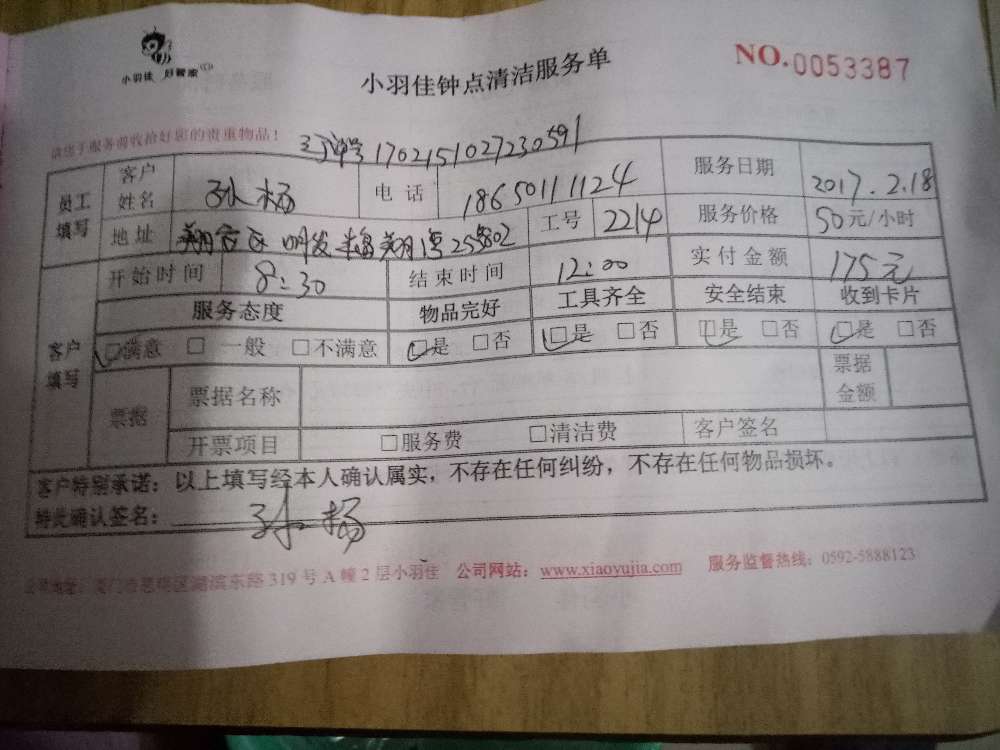 小羽佳 好管家
小羽佳钟点清洁服务单
NO.0053387
请您于服务前收拾好您的贵重物品！
170215102723059 1
员工填写 客户姓名 孙杨 电话 18650111124 服务日期 2017.2.18
地址 翔安区 明发 翔湾 工号 2214 服务价格 50元/小时
客户填写 开始时间 8:30 结束时间 12:00 实付金额 175元
服务态度 物品完好 工具齐全 安全结束 收到卡片
□满意 □一般 □不满意 □是 □否 □是 □否 □是 □否 □是 □否
票据 票据名称 票据金额
开票项目 □服务费 □清洁费 客户签名
客户特别承诺：以上填写经本人确认属实，不存在任何纠纷，不存在任何物品损坏。
特此确认签名： 孙杨
公司地址：厦门市思明区湖滨东路319号A幢2层小羽佳 公司网站：www.xiaoyujia.com 服务监督热线：0592-5888123